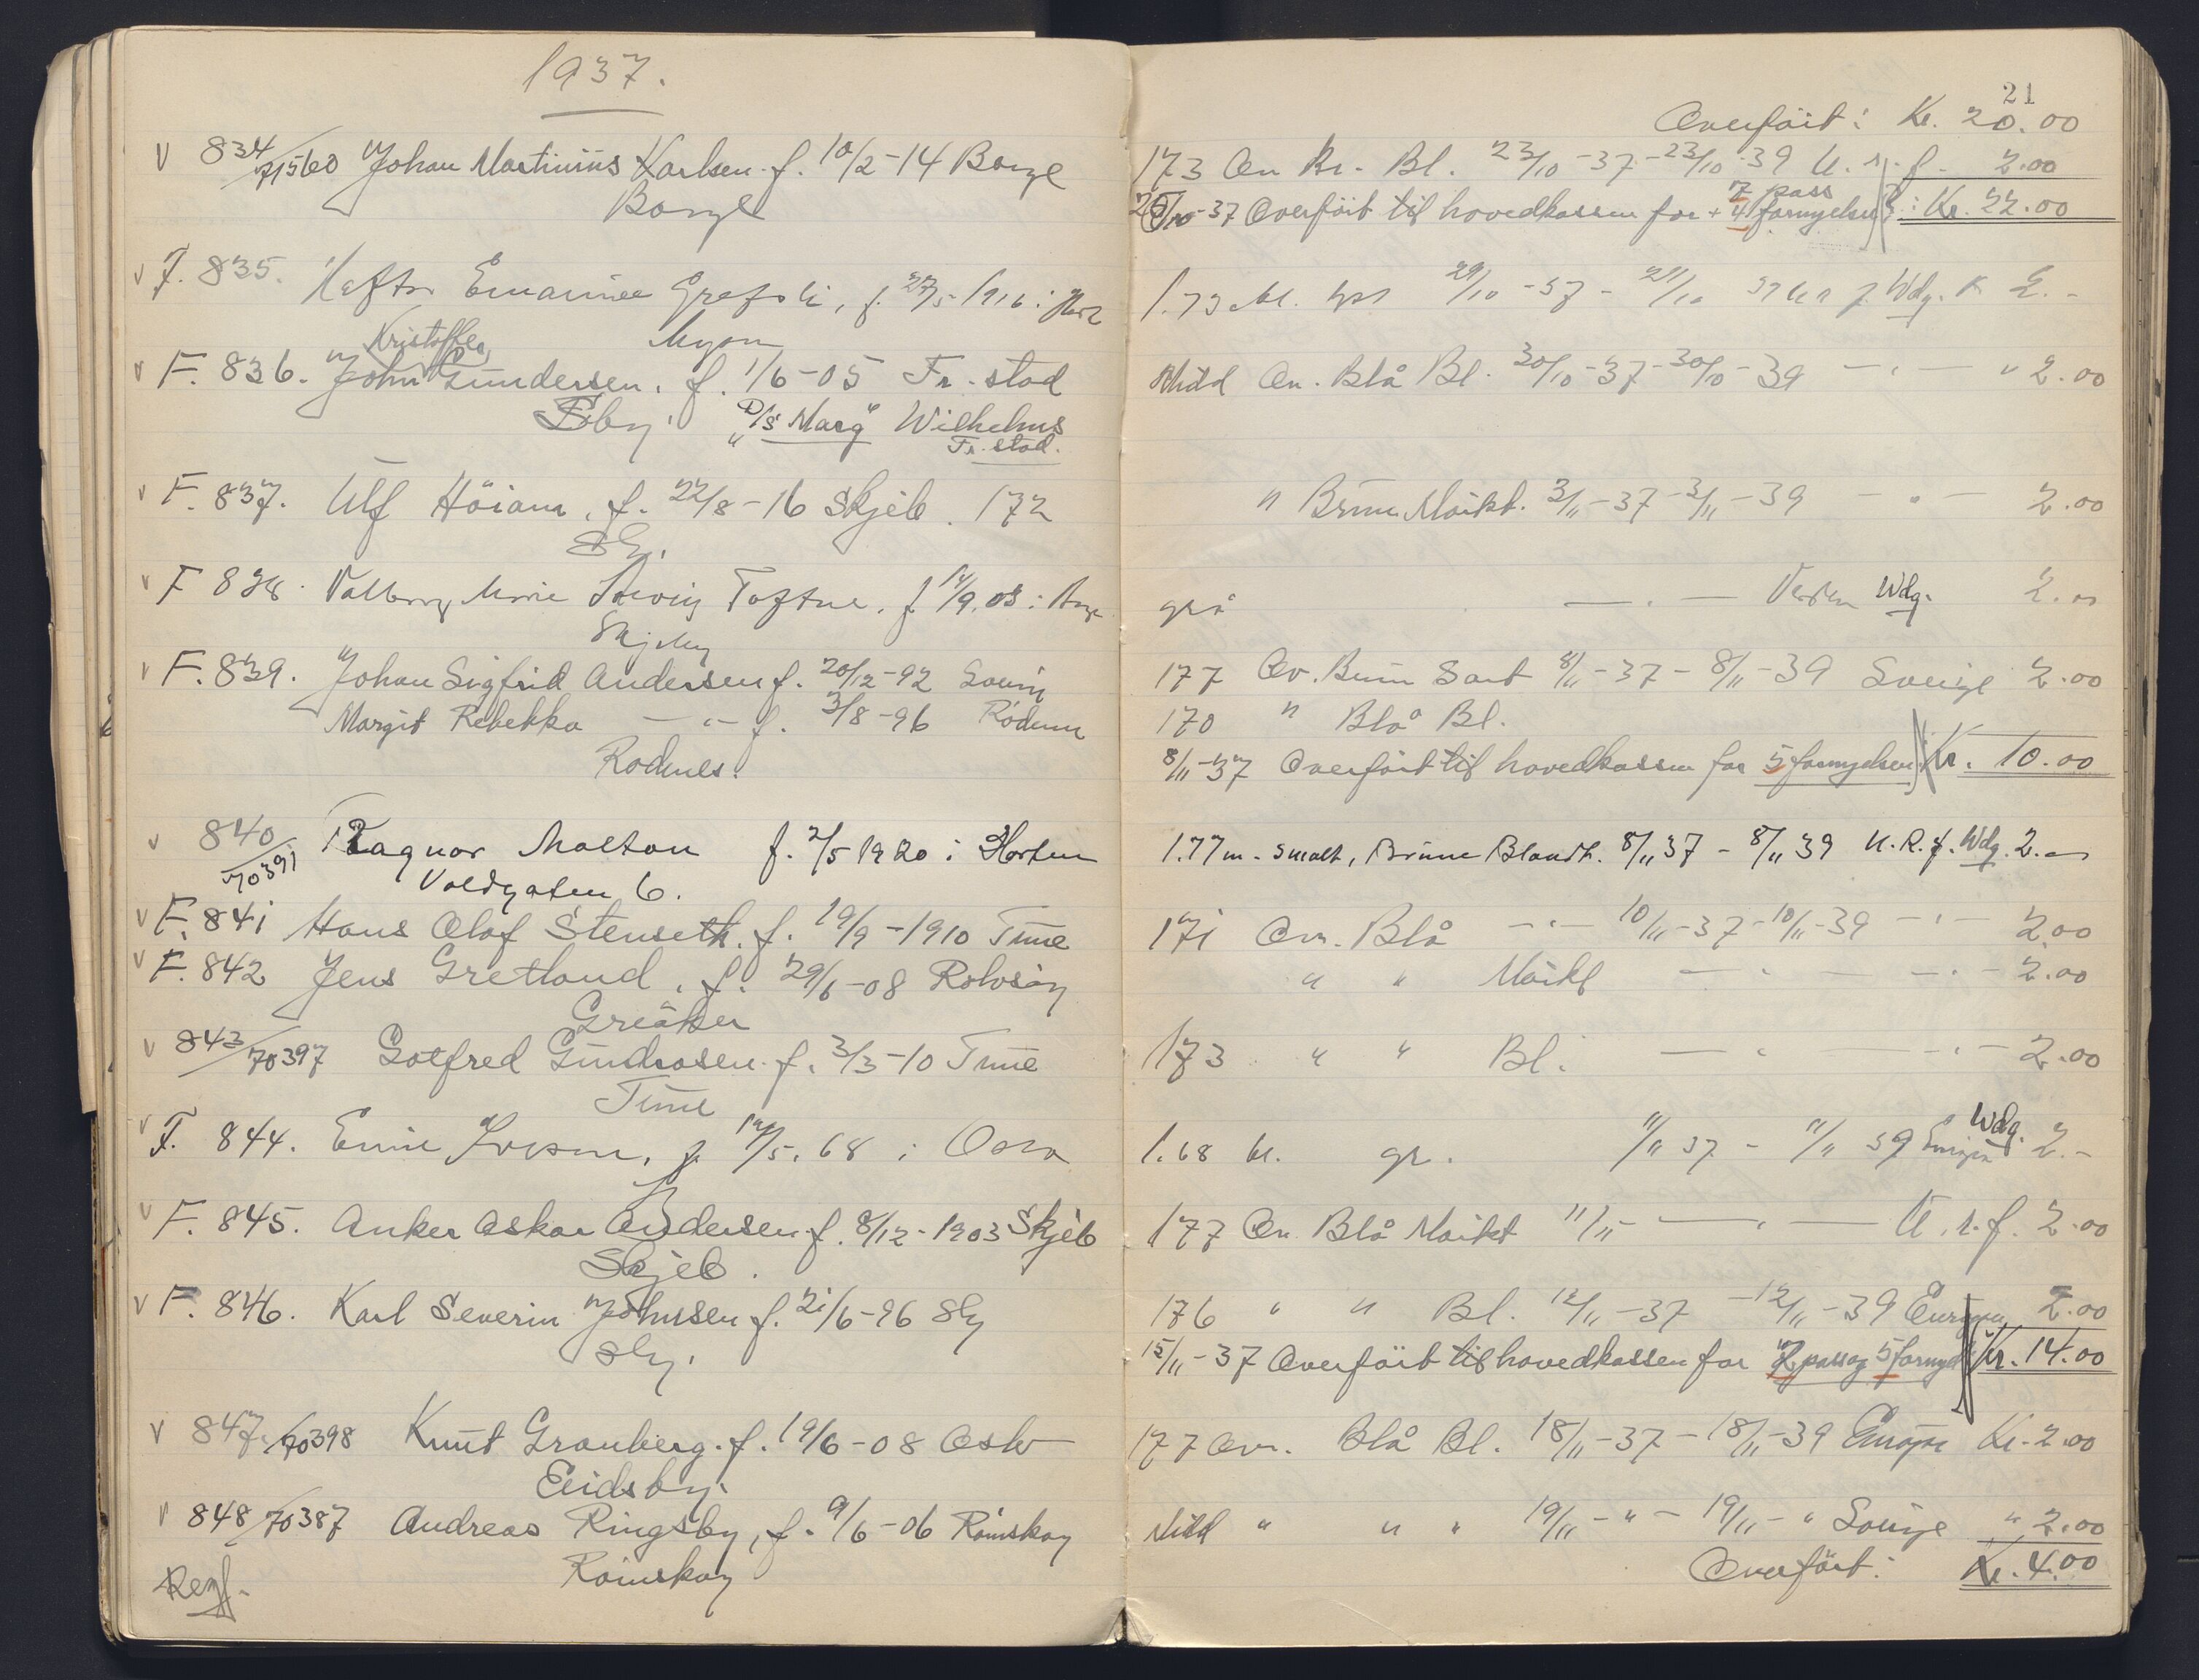 1937.
V 834/71560 Johan Martinius Karlsen. f. 10/2-14 Borge
Borge
V F. 835. Emanuel f. 27/5 1916 i
Kristoffer
V F. 836. John Gundersen. f. 1/6-05 Fr.stad
Sbg. D/S "Marg" Wilhelms
Fr.stad.
V F. 837. Ulf Höiam, f. 22/8-16 Skjeb. 172
Sbg.
V F 838. Valborg Marie Toftne. f. 14/9.03 i
V F. 839. Johan Sigfrid Andersen f. 20/12-92
Margit Rebekka — " — f. 3/8-96 Rödenes
Rödenes.
V 840/70391 Ragnar Moltau f. 2/5 1920 i Horten
Voldgaten 6.
V F. 841 Hans Olaf Stenseth. f. 19/9-1910 Tune
V F. 842 Jens Gretland, f. 29/6-08 Rolvsöy
Greåker
V 843/70397 Gotfred Gundrosen. f. 3/3-10 Tune
Tune
V F. 844. f. 14/5.68 i
V F. 845. Anker Oskar Andersen f. 8/12-1903 Skjeb
Skjeb.
V F. 846. Karl Severin Johnsen f. 21/6-96 Sbg
Sbg.
V 847/70398 Knut Granberg. f. 19/6-08 Oslo
Eidsberg.
V 848/70387 Andreas Ringsby, f. 9/6-06 Römskog
Römskog
21
Overfört: Kr. 20.00
173 Bl. 23/10-37-23/10-39 U. r. f. 2.00
7 pass
25/10-37 Overfört til hovedkassen for + 4 fornyelser: Kr. 22.00
1.73 29/10-37 - 29/10 39 U R f. Wdg. K 2.-
Midd Ov. Blå Bl. 30/10-37-30/10-39 — " — " 2.00
" Brune Mörkt. 3/11-37-3/11-39 — " — 2.00
grå — . — Wdg. 2.00
177 Ov. Brun Sort 8/11-37 - 8/11-39 Sverige 2.00
170 " Blå Bl.
8/11-37 Overfört til hovedkassen for 5 fornyelser Kr. 10.00
1.77 m. smalt, Brune Blondt. 8/11 37 - 8/11 39 U.R.f. Wdg. 2.-
171 Ov. Blå — " — 10/11-37-10/11-39 — " — 2.00
" " Mörkt — " — — " — 2.00
173 " " Bl. — " — — " — 2.00
Wdg.
1.68 bl. gr. 11/11 37 - 11/11 39 Europa 2.-
177 Ov. Blå Mörkt 11/11- — " — U.r.f. 2.00
176 " " Bl. 12/11-37 -12/11-39 Europa 2.00
15/11-37 Overfört til hovedkassen for 2 pass og 5 fornyel. Kr. 14.00
177 Ov. Blå Bl. 18/11-37-18/11-39 Europa Kr. 2.00
Midd " " " 19/11-"-19/11-" Sverige " 2.00
Overfört: Kr. 4.00